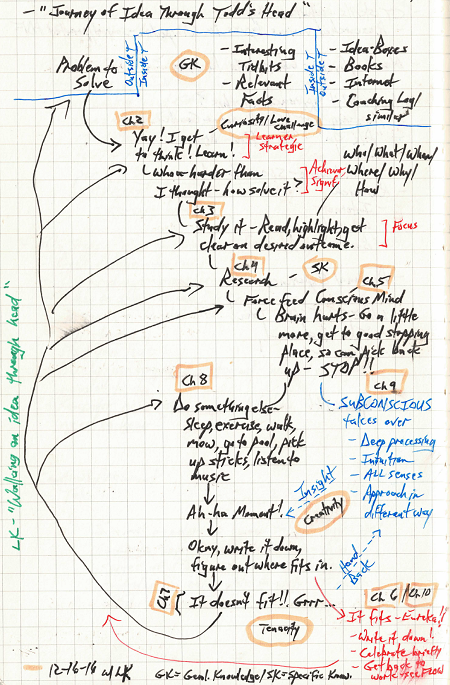 - "Journey of Idea Through Todd's Head"
Problem to
Solve
Outside T
Inside T
GK
- Interesting
Tidbits
- Relevant
Facts
Inside T
Outside T
- Idea-Boxes
- Books
- Internet
- Coaching Log/
similar
Ch2
Curiosity/Love
Challenge
Yay! I get
to think! Learn!
Learner
Strategic
Whoa-harder than
I thought - how solve it
Achiever
Signif
Who/What/When/
Where/Why/
How
Ch3
Study it - Read, highlight, get
clear on desired outcome.
Focus
Ch4
SK
Ch5
Research
Force feed Conscious Mind
Brain hurts - Go a little
more, get to good stopping
place, so can pick back
up - STOP!!
Ch8
Ch9
Do something else-
Sleep, exercise, walk,
mow, go to pool, pick
up sticks, listen to
music
SUBCONSCIOUS
takes over
- Deep processing
- Intuition
- ALL senses
- Approach in
different way
Insight
Ah-ha Moment!
Creativity
Okay, write it down,
figure out where fits in.
Hand
Back
Ch7
It doesn't fit!! Grrr...
Tenacity
Ch6/Ch10
It fits - Eureka!!
- Write it down!
- Celebrate briefly
- Get back to
work - see FLOW
LK - "Walking an idea through head"
12-16-16 w/LK
GK = Genl. Knowledge/SK = Specific Know.